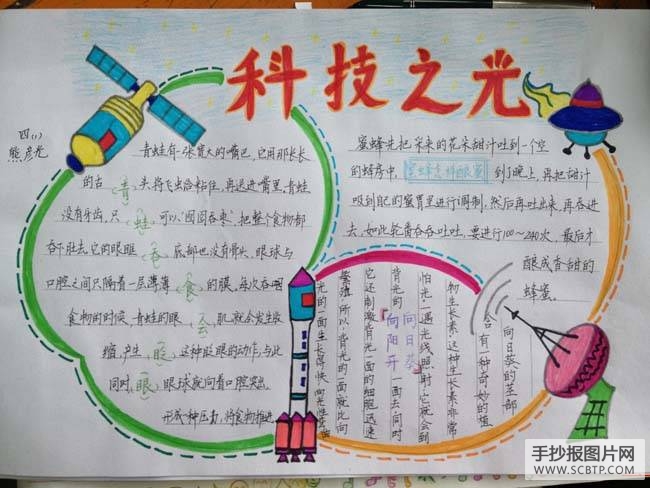 科技之光
四(1)
熊彦尧
青蛙有一张宽大的嘴巴，它用那长长
的舌头将飞虫给粘住，再送进嘴里，青蛙
没有牙齿，只可以"囫囵吞枣"把整个食物都
吞下肚去，它的眼眶底部也没有骨头，眼球与
口腔之间只隔着一层薄薄的膜，每次吞咽
食物的时候，青蛙的眼肌就会发生收
缩，产生这种眨眼的动作，与此
同时，眼球就向着口腔突出，
形成一种压力，将食物推进
青蛙吞食会眨眼
蜜蜂先把采来的花朵甜汁吐到一个空
的蜂房中，到了晚上，再把甜汁
蜜蜂怎样酿蜜
吸到自己的蜜胃里进行调制，然后再吐出来，再吞进
去，如此轮番吞吞吐吐，要进行100～240次，最后才
酿成香甜的
蜂蜜。
向日葵的茎部
含有一种奇妙的植
物生长素，这种生长素非常
怕光，一遇光线照射，它就会到
背光的一面去，同时
向日葵
向阳开
它还刺激背光一面的细胞迅速
繁殖，所以，背光的一面就比向
光的一面生长得快
手抄报图片网
WWW.SCBTP.COM